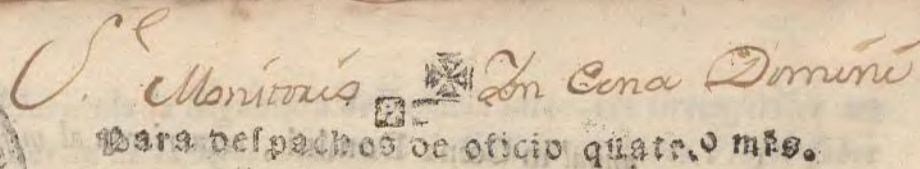 Sre Monitorio In Cena Domini
Para despachos de oficio quatro mrs.